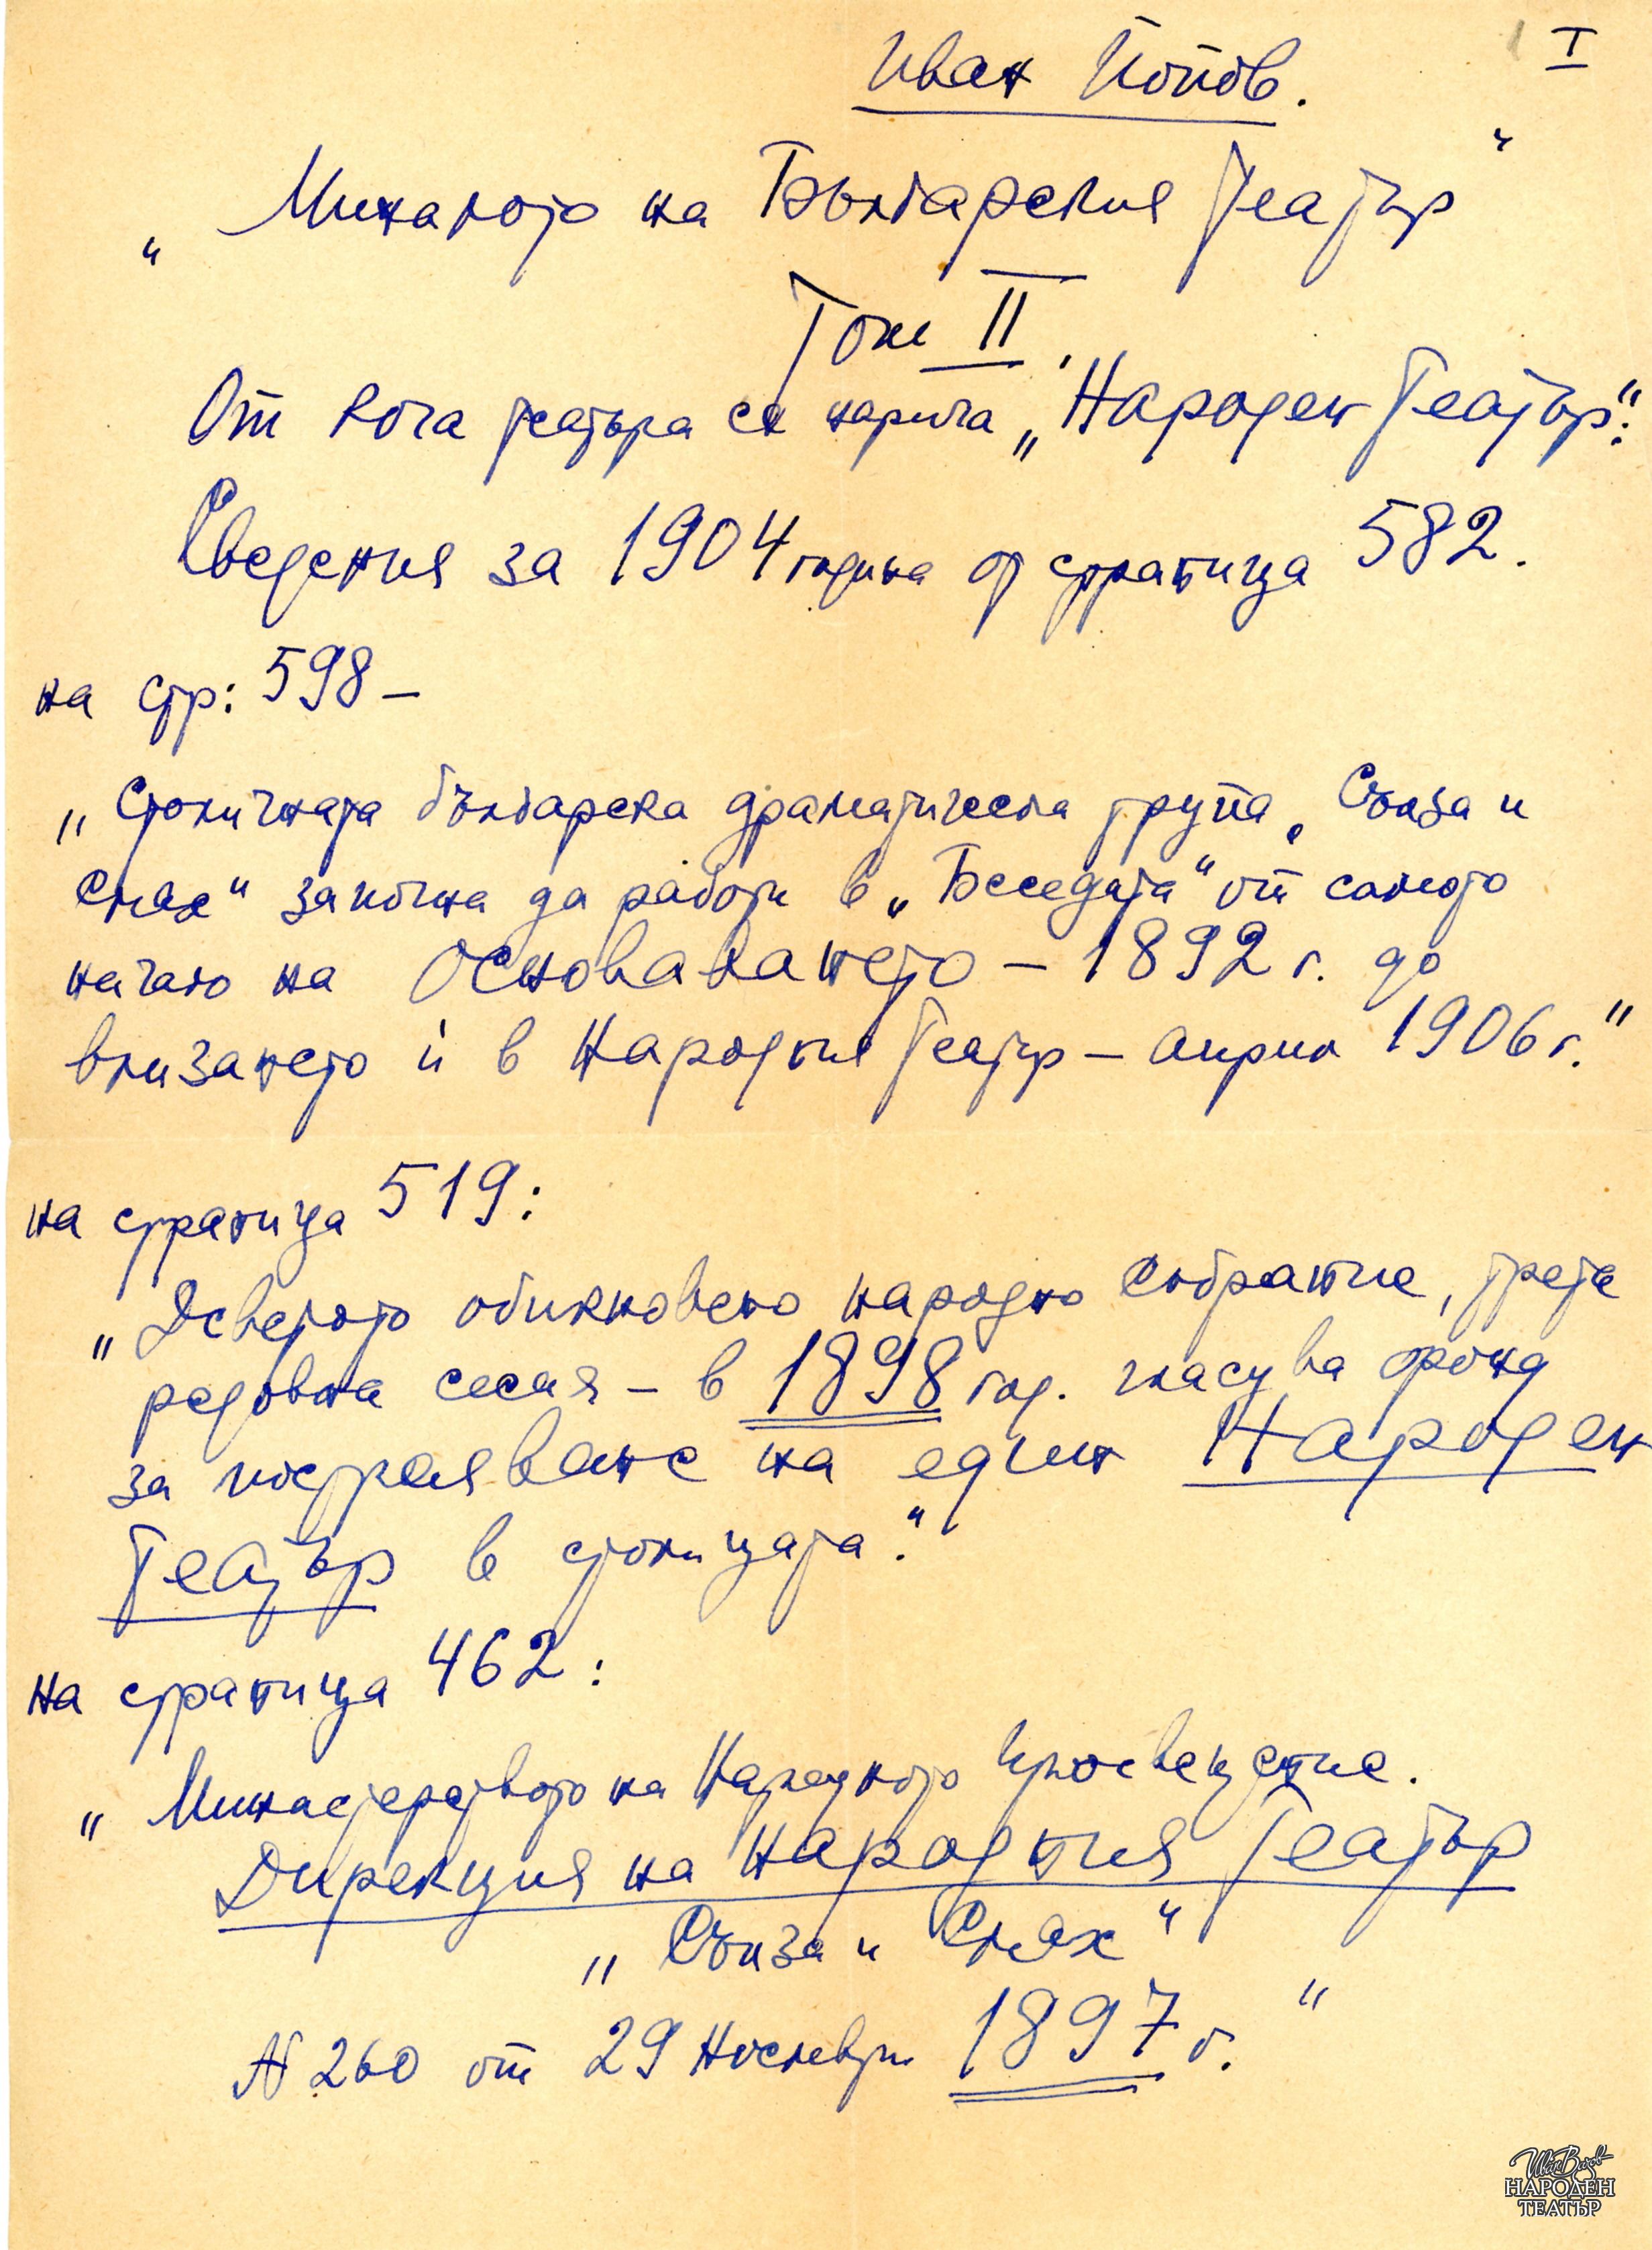 I
Иван Попов.
„Миналото на Българския Театър"
Том II.
От кога театъра се нарича „Народен Театър".
Сведения за 1904 година от страница 582.
на стр: 598 –
„Столичната българска драматическа трупа „Сълза и
Смях" започна да работи в „Беседата" от самото
начало на Основаването – 1892 г. до
влизането ѝ в Народния Театър – април 1906 г."
на страница 519:
„Деветото обикновено народно събрание, трета
редовна сесия – в 1898 год. гласува фонд
за построяване на един Народен
Театър в столицата."
на страница 462:
„Министерството на Народното Просвещение.
Дирекция на Народния Театър
„Сълза и Смях"
N 260 от 29 Ноември 1897 г."
НАРОДЕН
ТЕАТЪР